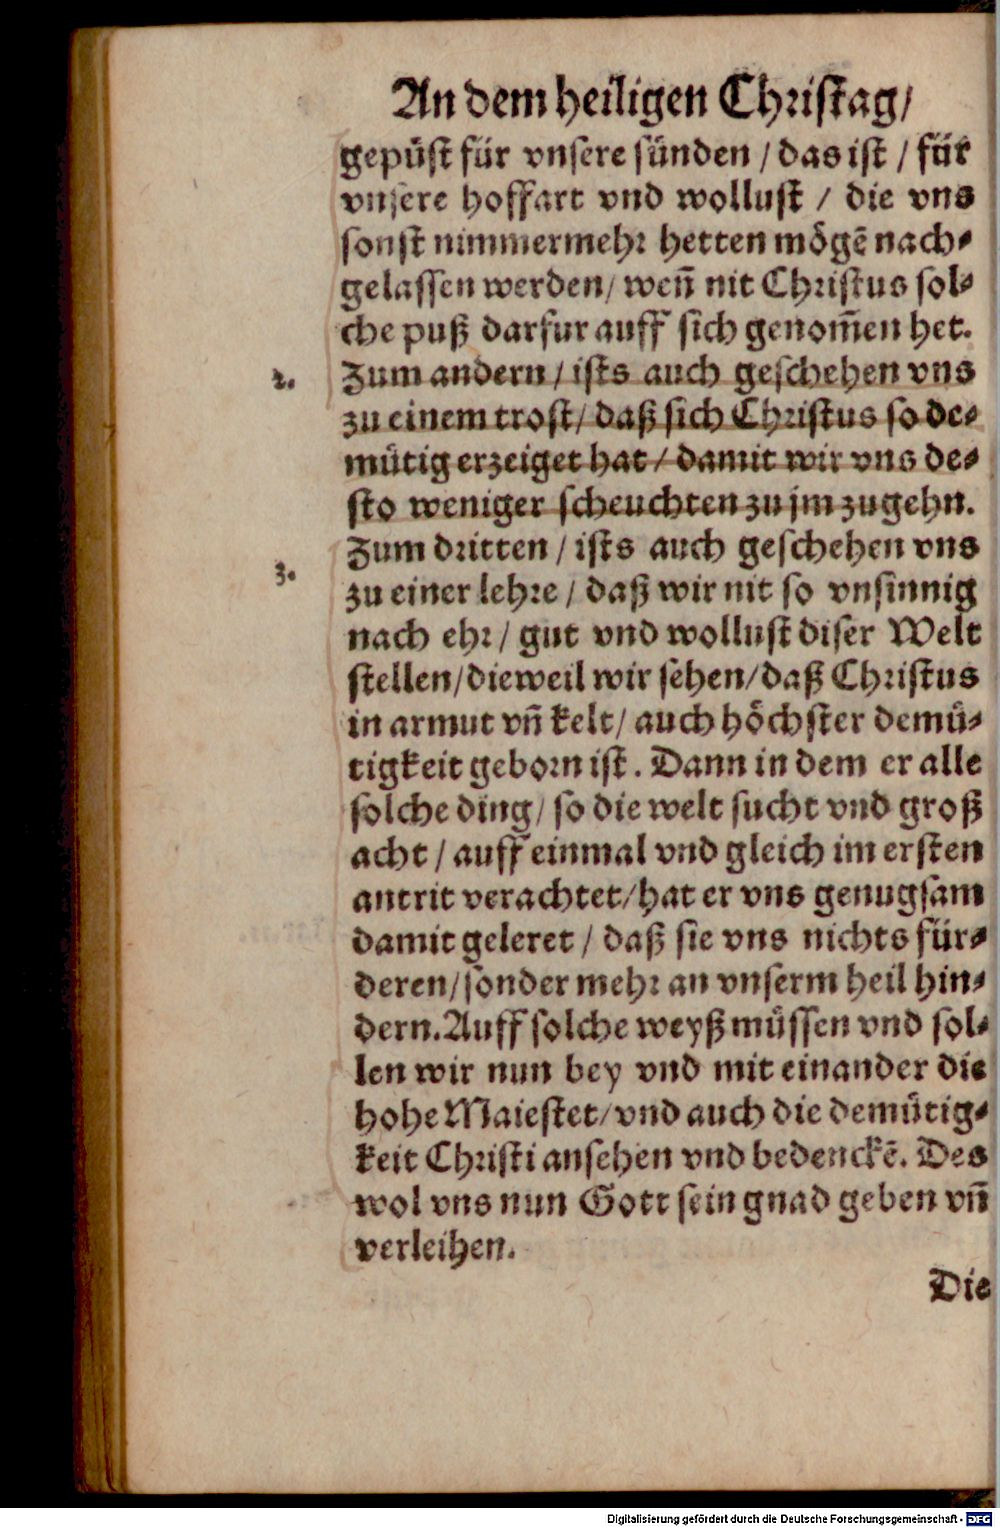 An dem heiligen Christag/
gepüst für vnsere sünden / das ist / für
vnsere hoffart vnd wollust / die vns
sonst nimmermehr hetten mögẽ nach⸗
gelassen werden/ weñ nit Christus sol⸗
che puß darfur auff sich genom̃en het.
2. Zum andern / ists auch geschehen vns
zu einem trost/ daß sich Christus so de⸗
mütig erzeiget hat / damit wir vns de⸗
sto weniger scheuchten zu jm zugehn.
Zum dritten / ists auch geschehen vns
3. zu einer lehre / daß wir nit so vnsinnig
nach ehr / gut vnd wollust diser Welt
stellen/dieweil wir sehen/daß Christus
in armut vñ kelt/ auch höchster demü⸗
tigkeit geborn ist. Dann in dem er alle
solche ding/ so die welt sucht vnd groß
acht / auff einmal vnd gleich im ersten
antrit verachtet/hat er vns genugsam
damit geleret / daß sie vns nichts für⸗
deren/sonder mehr an vnserm heil hin⸗
dern. Auff solche weyß müssen vnd sol⸗
len wir nun bey vnd mit einander die
hohe Maiestet/vnd auch die demütig⸗
keit Christi ansehen vnd bedenckẽ. Des
wol vns nun Gott sein gnad geben vñ
verleihen.
Die
Digitalisierung gefördert durch die Deutsche Forschungsgemeinschaft - DFG